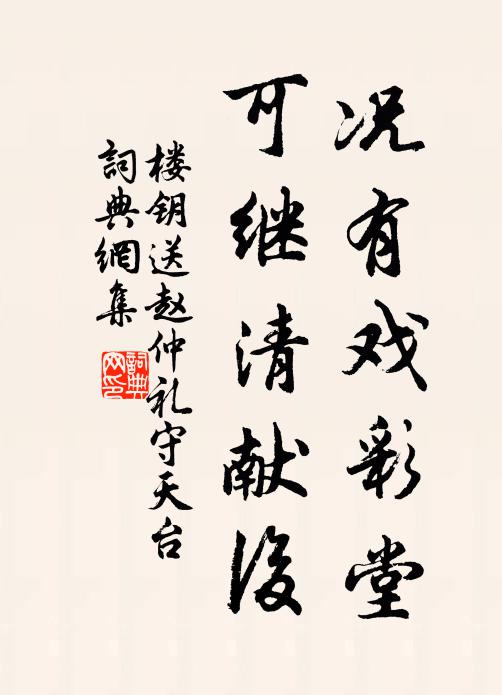 况有戏彩堂
可继清献後
楼钥送赵仲礼守天台
詞典網集
詞典网印